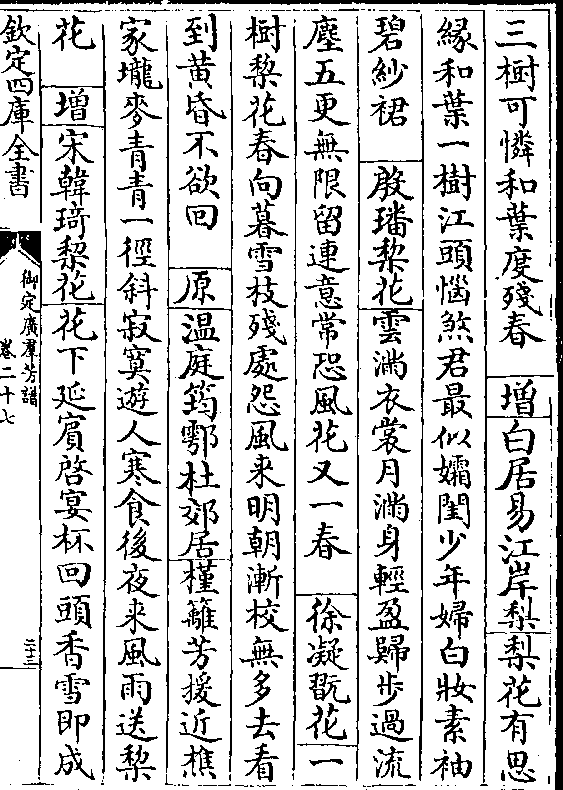 三樹可憐和葉度殘春 增 白居易江岸梨 梨花有思
緣和葉一樹江頭惱煞君最似孀閨少年婦白妝素袖
碧紗裙 殷璠梨花 雲滿衣裳月滿身輕盈歸步過流
塵五更無限留連意常恐風花又一春 徐凝翫花 一
樹棃花春向暮雪枝殘處怨風來明朝漸校無多去看
到黃昏不欲回 原 温庭筠鄠杜郊居 槿籬芳援近樵
家壠麥青青一徑斜寂寞遊人寒食後夜來風雨送棃
花 增 宋韓琦棃花 花下延賓啓宴杯回頭香雪即成
欽定四庫全書
御定廣羣芳譜
卷二十七
二十三